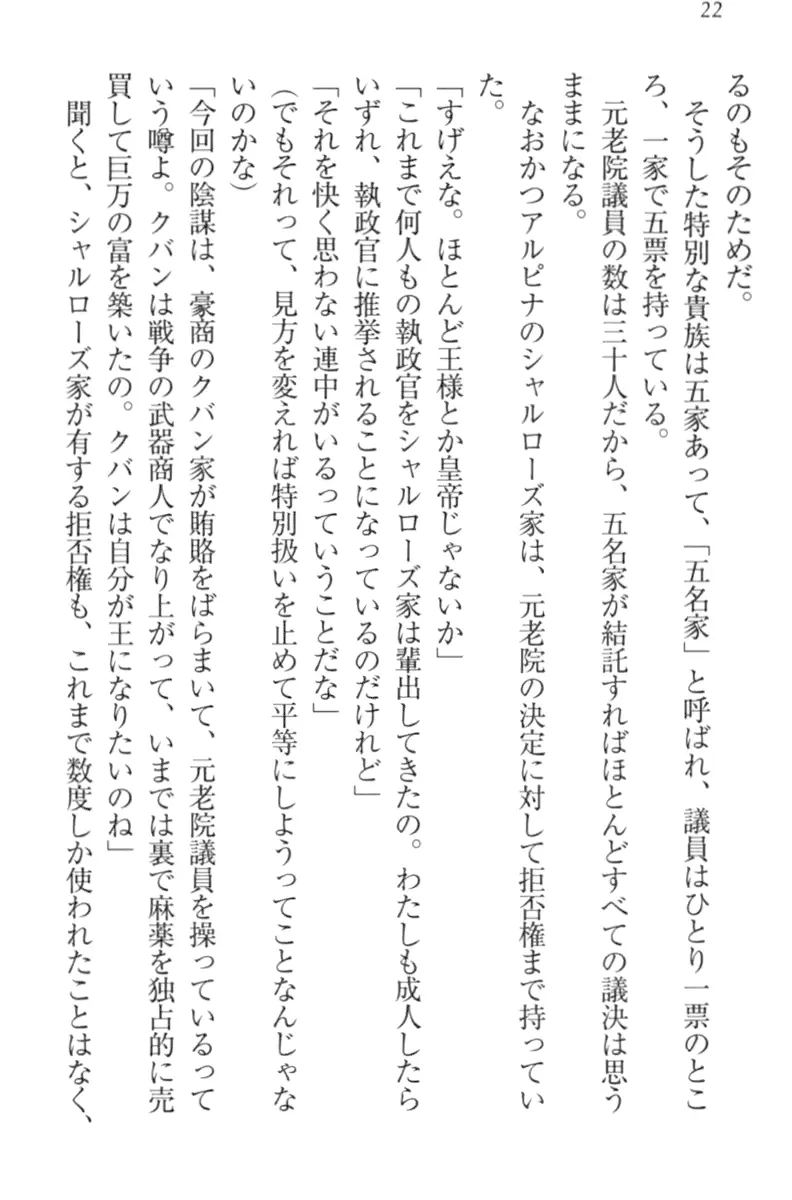 22
るのもそのためだ。
　そうした特別な貴族は五家あって、「五名家」と呼ばれ、議員はひとり一票のとこ
ろ、一家で五票を持っている。
　元老院議員の数は三十人だから、五名家が結託すればほとんどすべての議決は思う
ままになる。
　なおかつアルピナのシャルローズ家は、元老院の決定に対して拒否権まで持ってい
た。
「すげえな。ほとんど王様とか皇帝じゃないか」
「これまで何人もの執政官をシャルローズ家は輩出してきたの。わたしも成人したら
いずれ、執政官に推挙されることになっているのだけれど」
「それを快く思わない連中がいるっていうことだな」
(でもそれって、見方を変えれば特別扱いを止めて平等にしようってことなんじゃな
いのかな)
「今回の陰謀は、豪商のクバン家が賄賂をばらまいて、元老院議員を操っているって
いう噂よ。クバンは戦争の武器商人でなり上がって、いまでは裏で麻薬を独占的に売
買して巨万の富を築いたの。クバンは自分が王になりたいのね」
　聞くと、シャルローズ家が有する拒否権も、これまで数度しか使われたことはなく、